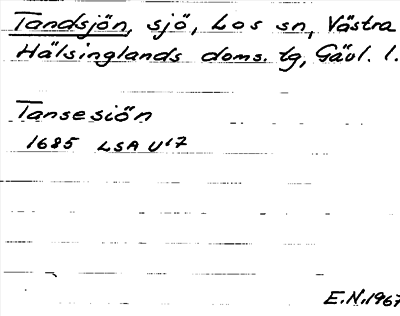 Tandsjön, sjö, Los sn, Västra
Hälsinglands doms. tg, Gävl. l.
Tansesiön
1685 LSA U'7
E.N.1967